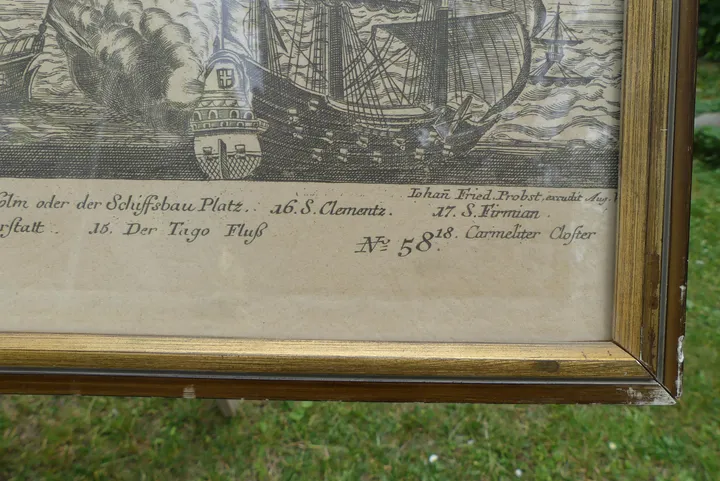 Iohañ Fried. Probst. excudit Aug.
Holm oder der Schiffsbau Platz. 16. S. Clementz. 17. S. Firmian.
rstatt. 15. Der Tago Fluß No. 58. 18. Carmeliter Closter